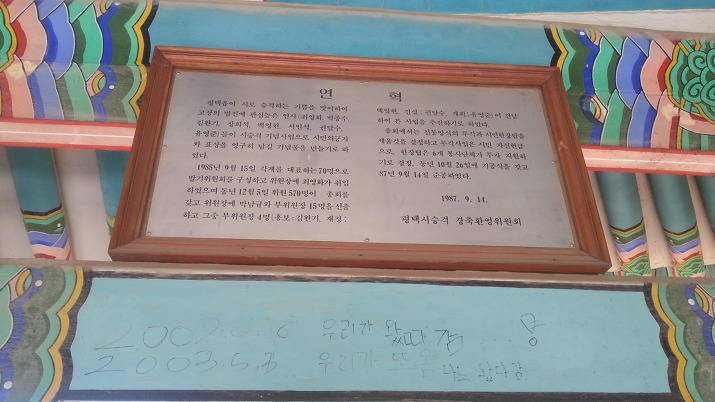 연 혁
평택읍이 시로 승격하는 기쁨을 맞이하여
고장의 발전에 관심높은 인사(최영화, 박공수,
김완기, 장희식, 백영현, 서인석, 권달수,
유영준)들이 시승격 기념사업으로 시민의긍지
와 표상을 영구히 남길 기념물을 만들기로 하
였다.
1985년 9월 15일 각계를 대표하는70명으로
발기위원회를 구성하고 위원장에 최영화가 취임
하였으며 동년 12월 5일 위원 570명이 총회를
갖고 위원장에 박남규와 부위원장 15명을 선출
하고 그중 부위원장 4명(홍보:김완기, 재정:
백영현, 건설:권달수, 계획:유영준)이 전담
하여 본 사업을 추진하기로 하였다.
총회에서는 전통양식의 누각과 시민헌장탑을
세울것을 결정하고 누각사업은 시민 자진헌금
으로, 헌장탑은 6개 봉사단체가 투자 지원하
기로 결정, 동년 10월 26일에 기공식을 갖고
87년 9월 14일 준공하였다.
1987. 9. 14.
평택시승격 경축환영위원회
우리가 왔다감
2003.5.5 우리가 또 옴